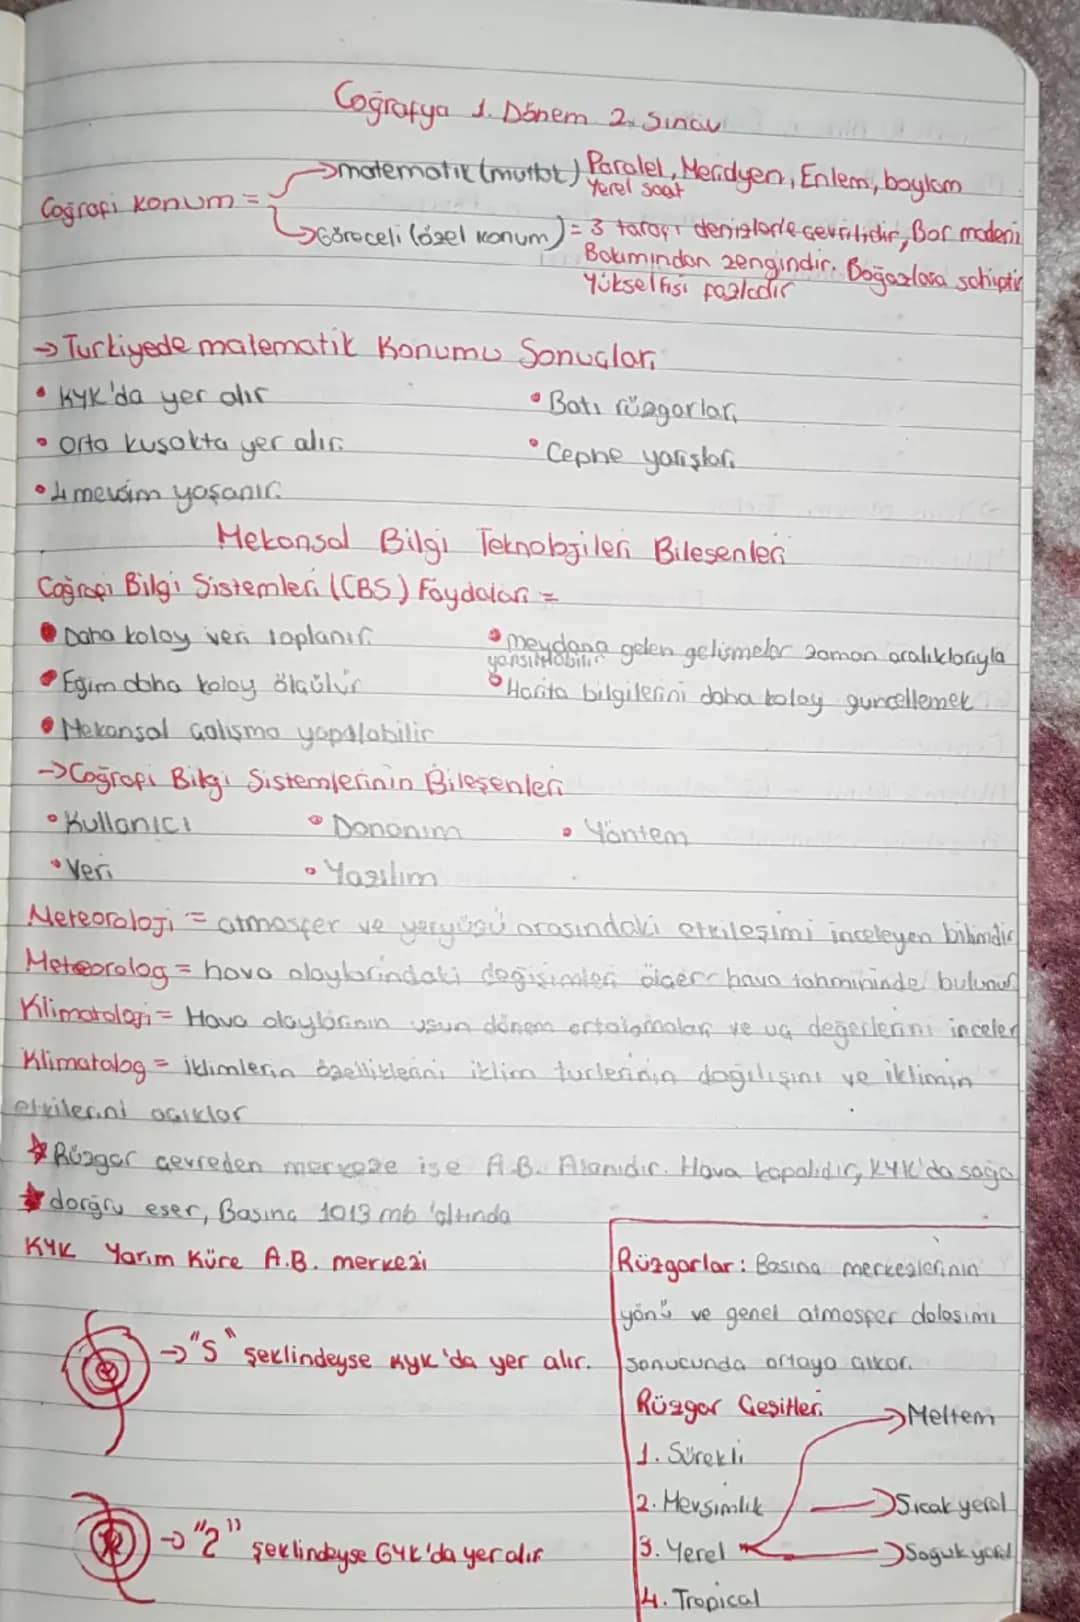 Coğrafya 1. Dönem 2. Sınav
Coğrafi Konum = →matematik (mutlak) Paralel, Meridyen, Enlem, boylam
Yerel saat
→Göreceli (özel konum) = 3 tarafı denizlerle çevrilidir, Bor madeni
Bakımından zengindir. Boğazlara sahiptir
Yükseltisi fazladır
→ Turkiyede matematik Konumu Sonuçları
• KYK'da yer alır
• Batı rüzgarları
• Orta kuşakta yer alır.
• Cephe yağışları
• 4 mevsim yaşanır.
Mekansal Bilgi Teknolojileri Bileşenleri
Coğrafi Bilgi Sistemleri (CBS) Faydaları =
• Daha kolay veri toplanır.
• meydana gelen gelişmeler zaman aralıklarıyla
yansıtılabilir
• Eğim daha kolay ölçülür
• Harita bilgilerini daha kolay guncellemek
• Mekansal çalışma yapılabilir
→Coğrafi Bilgi Sistemlerinin Bileşenleri
• Kullanıcı • Donanım • Yöntem
• Veri • Yazılım
Meteoroloji = atmosfer ve yeryüzü arasındaki etkileşimi inceleyen bilimdir
Meteorolog = hava olaylarındaki değişimleri ölçer hava tahmininde bulunur
Klimatoloji = Hava olaylarının uzun dönem ortalamaları ve uç değerlerini inceler
Klimatolog = iklimlerin özelliklerini iklim turlerinin dağılışını ve iklimin
etkilerini açıklar
Rüzgar çevreden merkeze ise A.B. Alanıdır. Hava kapalıdır, KYK'da sağa
dorğru eser, Basınç 1013 mb 'altında
KYK Yarım Küre A.B. merkezi
→"S" şeklindeyse KYK'da yer alır.
→"2" şeklindeyse GYK'da yer alır
Rüzgarlar: Basınç merkezlerinin
yönü ve genel atmosfer dolaşımı
sonucunda ortaya çıkar.
Rüzgar Çeşitleri
→Meltem
1. Sürekli
2. Mevsimlik
→Sıcak yerel
3. Yerel
→Soğuk yerel
4. Tropical